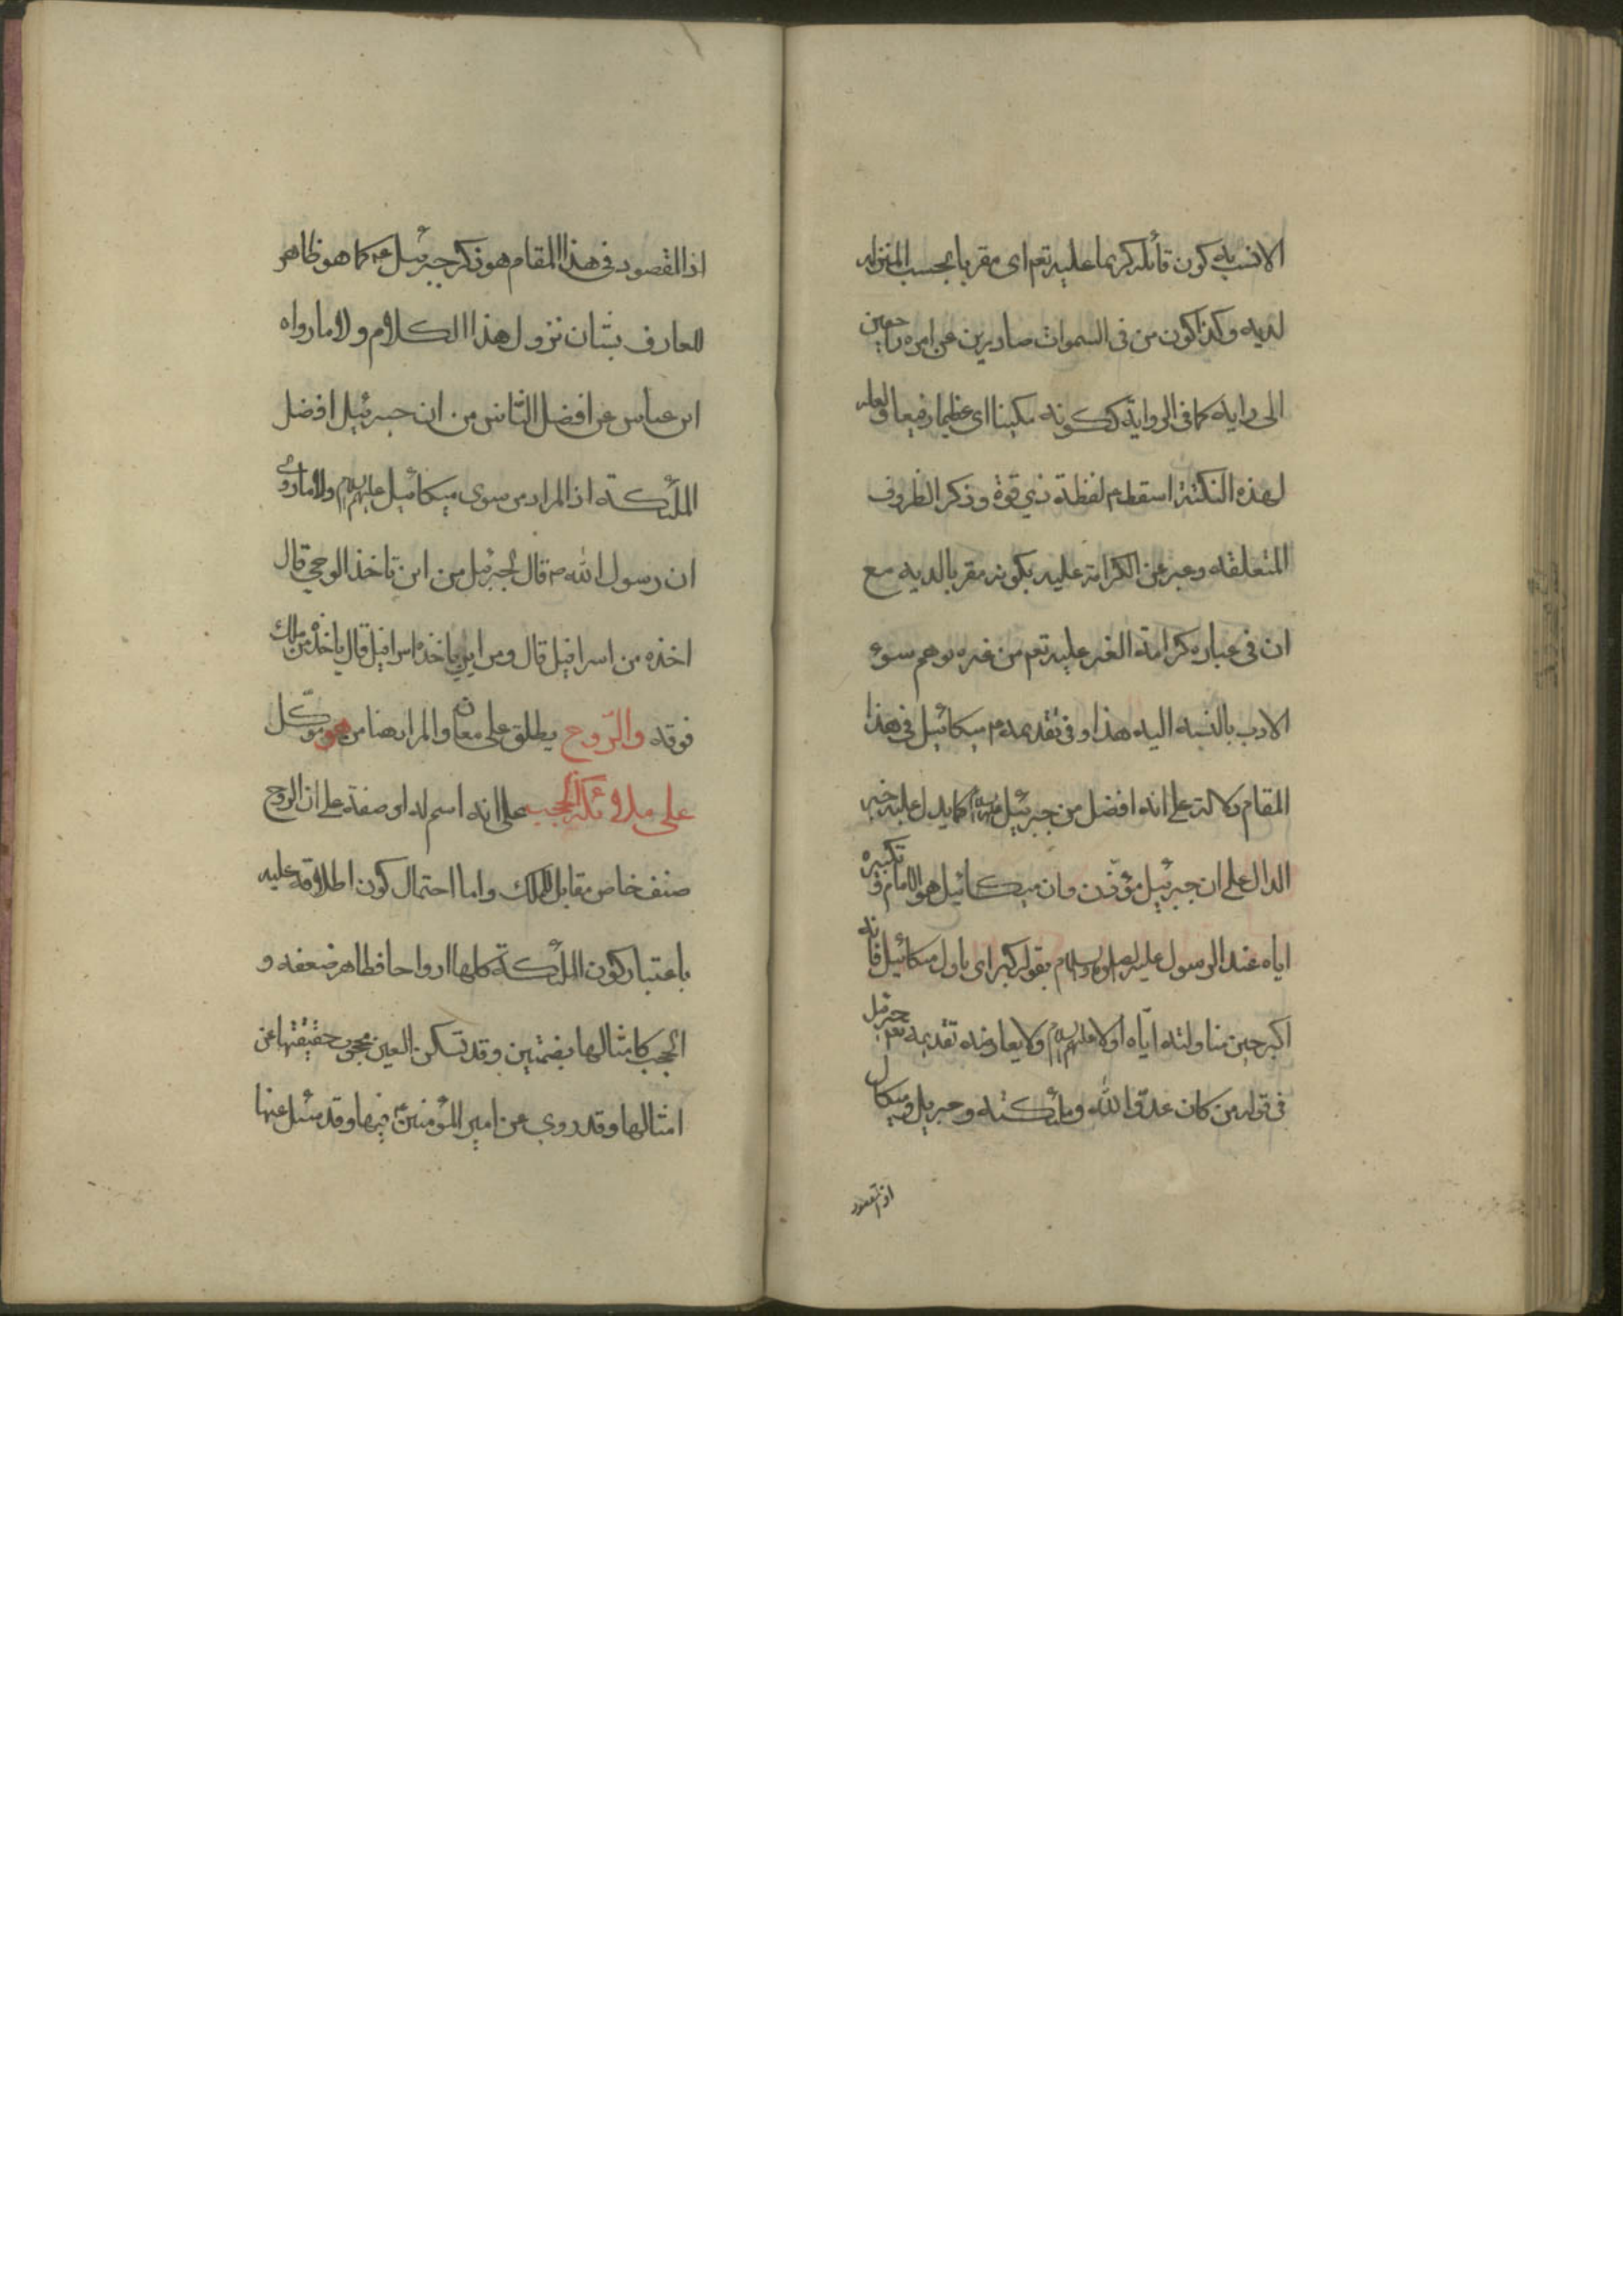 الانسب به كون قائله كريما عليه تعم اى مقربا بحسب المنزله
لديه وكذا كون من فى السموات صادرين عن امره راجعين
الى رايه كما فى الرواية ككونه مكينا اى عظيما رفيعا ولعله
لهذه النكتة اسقط م لفظة ذي قوة وذكر الظروف
المتعلقه وعبر عن الكرامة عليه بكونه مقربا لديه مع
ان فى عباره كرامة الغير عليه تعم من غيره يوهم سوء
الادب بالنسبه اليه هذا وفى تقديمه م ميكائيل فى هذا
المقام دلالة على انه افضل من جبرئيل كما يدل عليه خبر
الدال على ان جبرئيل مؤذن وان ميكائيل هو الامام و تكبيره
اياه عند الرسول عليه الصلوة والسلام بقوله كبر اى ناول ميكائيل فانه
اكبر حين مناولته اياه اولا عليهم السلام ولا يعارضه تقديمه تعم جبرئيل
فى قوله من كان عدوا لله وملئكته وجبريل وميكال
اذ المقصود
اذ المقصود فى هذا المقام هو ذكر جبرئيل ع كما هو ظاهر
للعارف بشان نزول هذا الكلام ولا ما رواه
ابن عباس عن افضل الناس من ان جبرئيل افضل
الملئكة اذ المراد من سوى ميكائيل عليهم السلام ولا ما روى
ان رسول الله ص قال لجبرئيل من اين تاخذ الوحي قال
اخذه من اسرافيل قال ومن اين ياخذه اسرافيل قال ياخذه من ملك
فوقه والرّوح يطلق على معان والمراد هنا من هو موكّل
على ملائكة الحجب على انه اسم له او صفة على ان الروح
صنف خاص مقابل للملك واما احتمال كون اطلاقه عليه
باعتبار كون الملئكة كلها ارواحا فظاهر ضعفه و
الحجب كامثالها بضمتين وقد تسكن العين محجوب حقيقتها عن
امثالها وقد روي عن امير المؤمنين ع فيها وقد سئل عنها